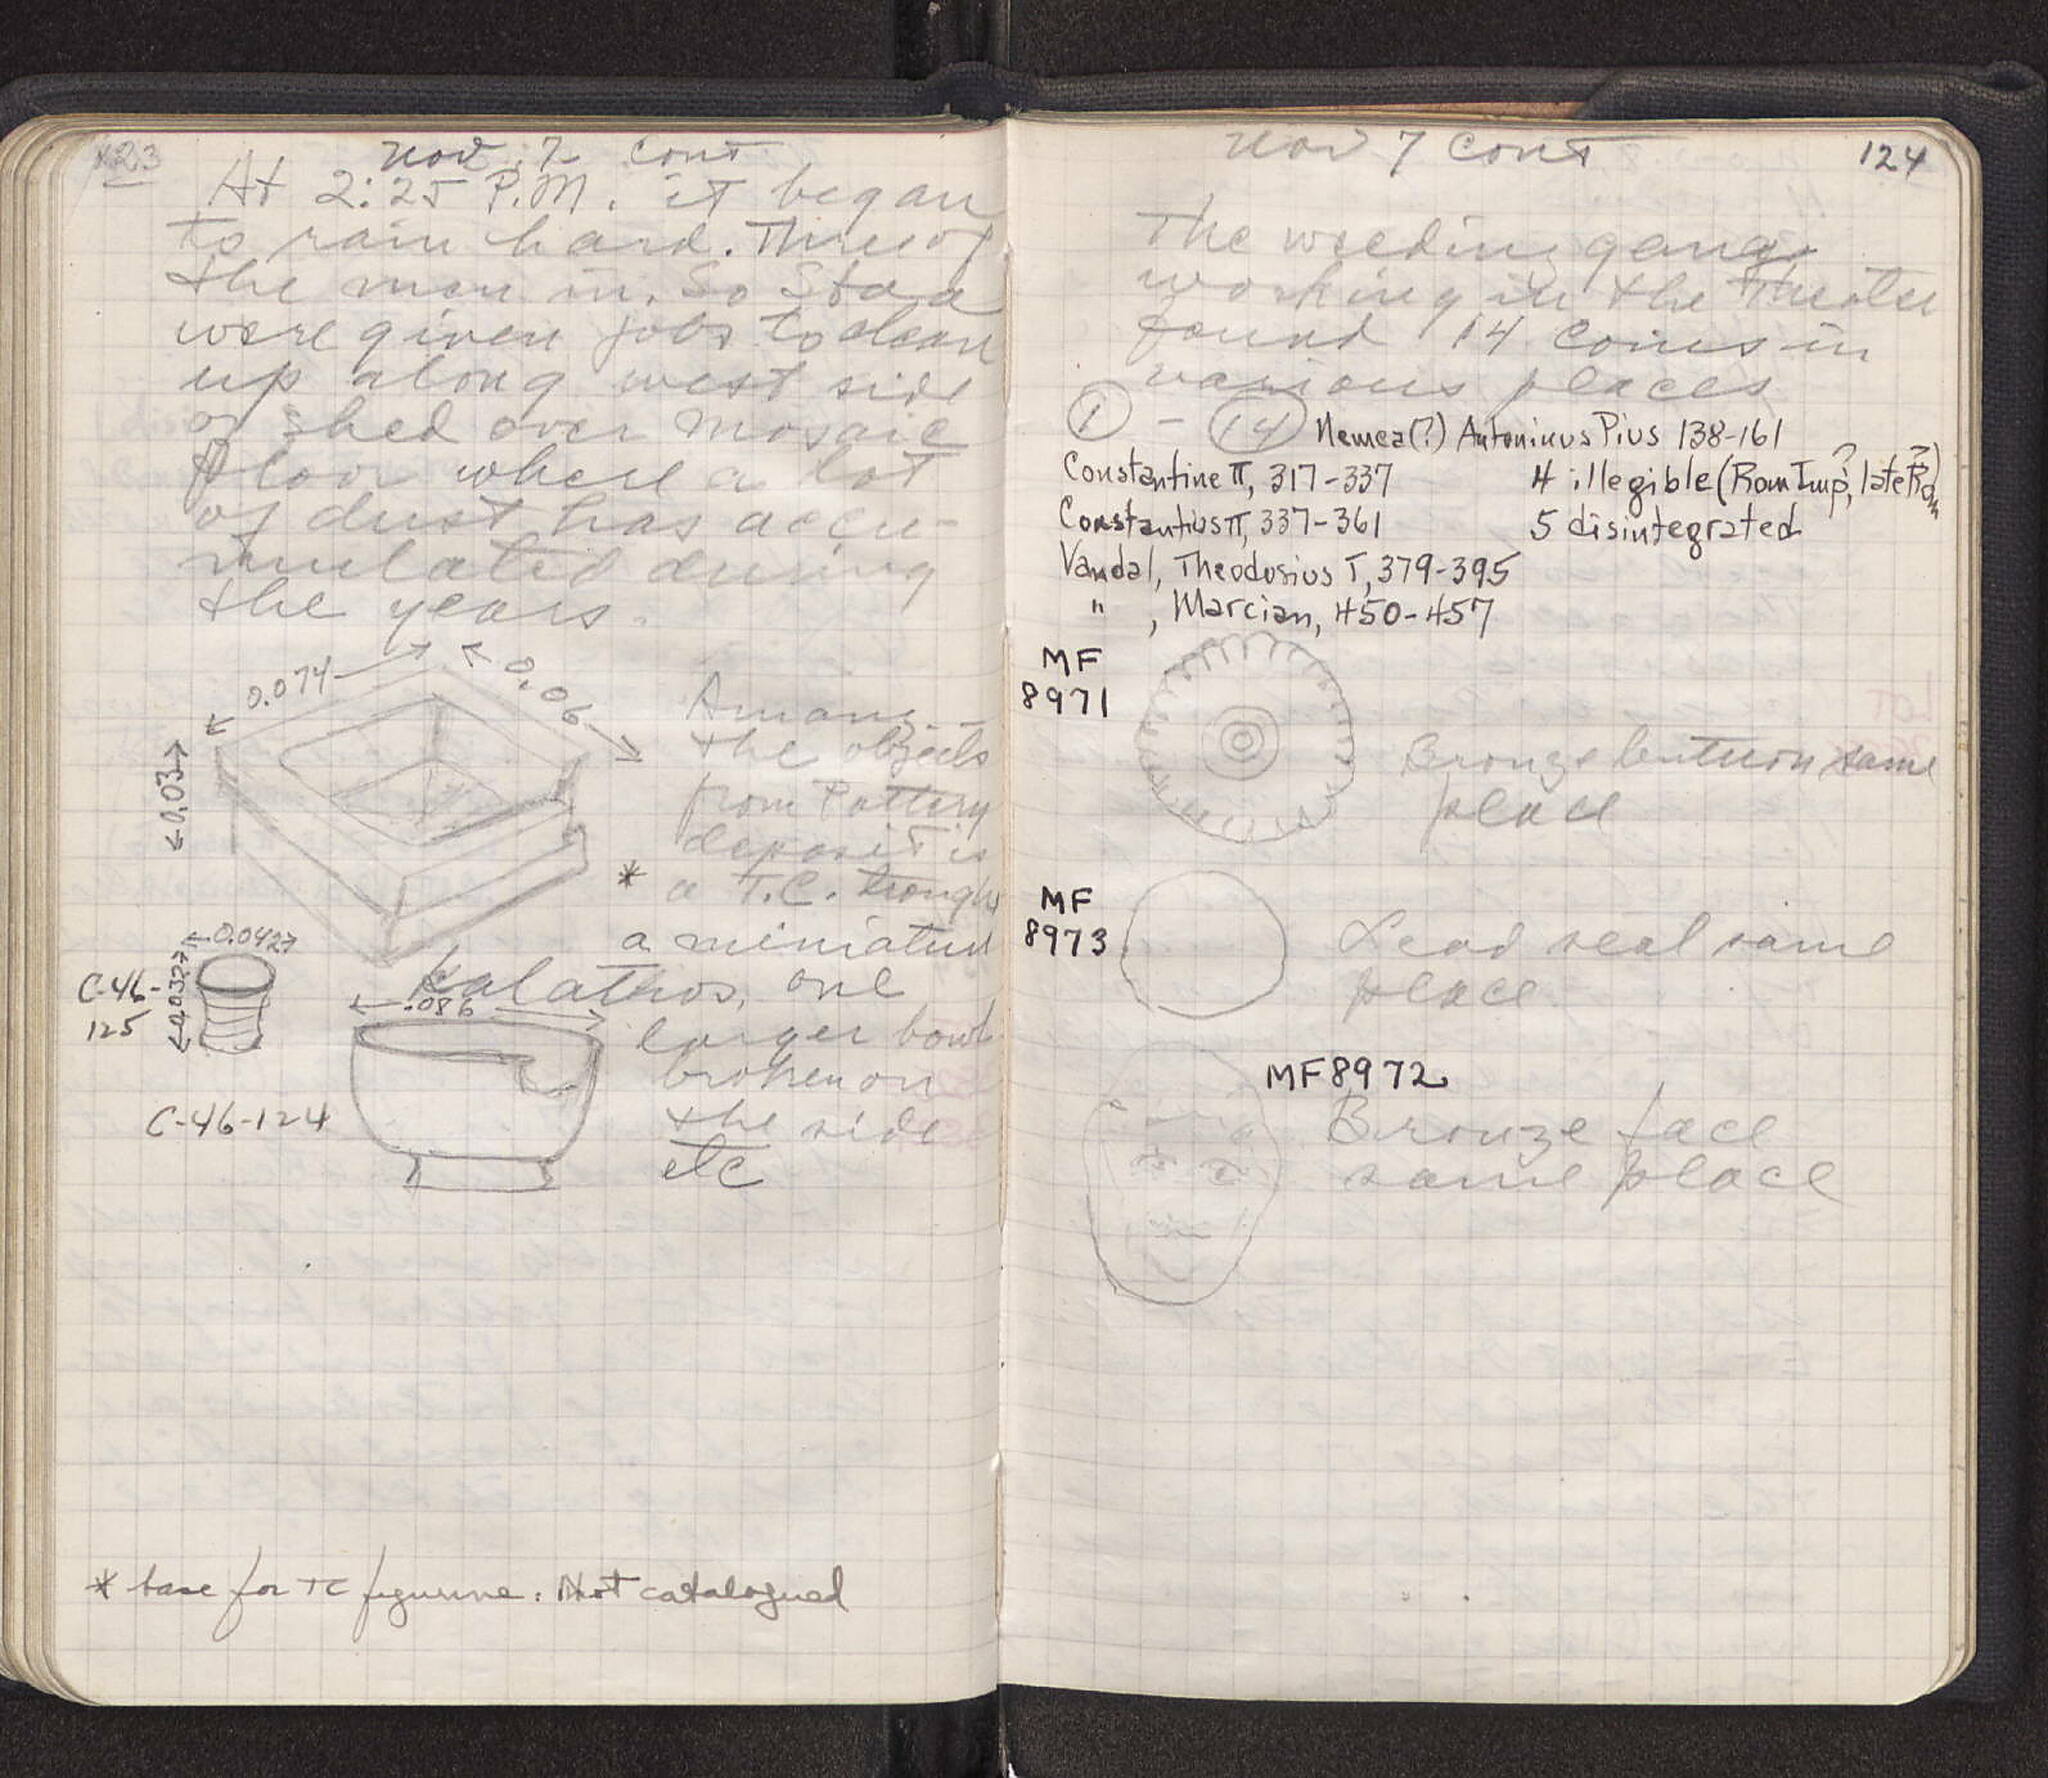 123
Nov. 7 cont
At 2:25 P.M. it began
to rain hard. Three of
the men in So Stoa
were given jobs to clean
up along west side
of shed over mosaic
floor where a lot
of dust has accu-
mulated during
the years.
0.074
0.06
0.03
Among
the objects
from Pottery
deposit is
* a T.C. trough
a miniature
kalathos, one
larger bowl
broken on
the side
etc
0.042
C-46-
125
.086
C-46-124
* base for TC figurine. Not catalogued
Nov 7 Cont
124
The weeding gang
working in the Theater
found 14 coins in
various places
1 - 14 Nemea(?) Antoninus Pius 138-161
Constantine II, 317-337
4 illegible (Rom Imp?, late Rom?)
Constantius II, 337-361
5 disintegrated
Vandal, Theodosius I, 379-395
" , Marcian, 450-457
MF
8971
Bronze button same
place
MF
8973
Lead seal same
place
MF8972
Bronze face
same place